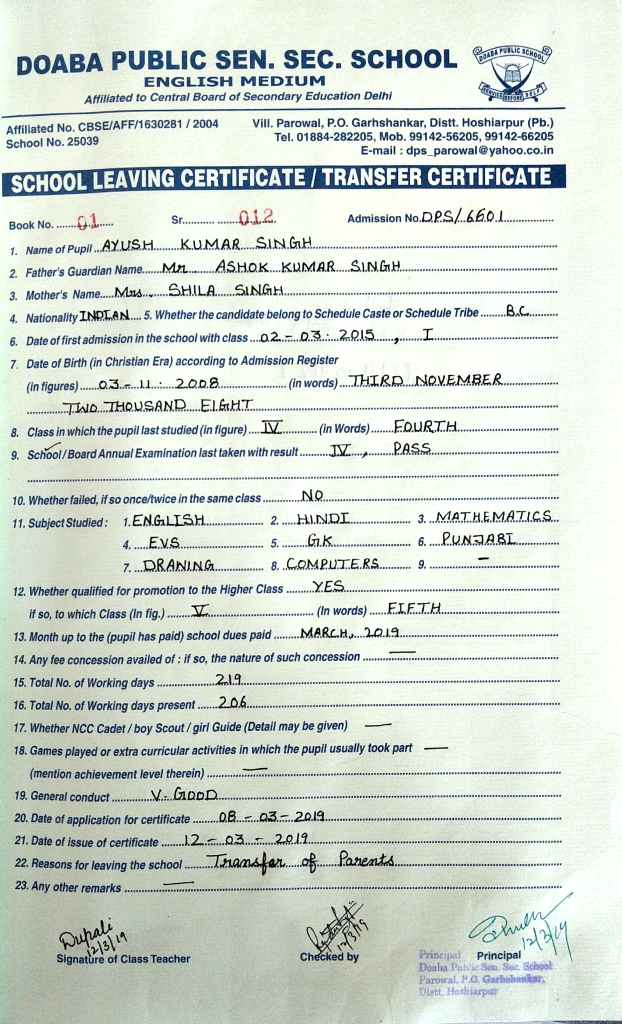 DOABA PUBLIC SEN. SEC. SCHOOL
ENGLISH MEDIUM
Affiliated to Central Board of Secondary Education Delhi
DOABA PUBLIC SCHOOL
Affiliated No. CBSE/AFF/1630281 / 2004
School No. 25039
Vill. Parowal, P.O. Garhshankar, Distt. Hoshiarpur (Pb.)
Tel. 01884-282205, Mob. 99142-56205, 99142-66205
E-mail : dps_parowal@yahoo.co.in
SCHOOL LEAVING CERTIFICATE / TRANSFER CERTIFICATE
Book No. 01 Sr. 012 Admission No. DPS/6601
1. Name of Pupil AYUSH KUMAR SINGH
2. Father's Guardian Name Mr. ASHOK KUMAR SINGH
3. Mother's Name Mrs. SHILA SINGH
4. Nationality INDIAN 5. Whether the candidate belong to Schedule Caste or Schedule Tribe B.C.
6. Date of first admission in the school with class 02-03-2015, I
7. Date of Birth (in Christian Era) according to Admission Register
(in figures) 03-11-2008 (in words) THIRD NOVEMBER
TWO THOUSAND EIGHT
8. Class in which the pupil last studied (in figure) IV (in Words) FOURTH
9. School / Board Annual Examination last taken with result IV, PASS
10. Whether failed, if so once/twice in the same class NO
11. Subject Studied : 1. ENGLISH 2. HINDI 3. MATHEMATICS
4. EVS 5. GK 6. PUNJABI
7. DRANING 8. COMPUTERS 9. –
12. Whether qualified for promotion to the Higher Class YES
if so, to which Class (In fig.) V (In words) FIFTH
13. Month up to the (pupil has paid) school dues paid MARCH, 2019
14. Any fee concession availed of : if so, the nature of such concession —
15. Total No. of Working days 219
16. Total No. of Working days present 206
17. Whether NCC Cadet / boy Scout / girl Guide (Detail may be given) —
18. Games played or extra curricular activities in which the pupil usually took part —
(mention achievement level therein) —
19. General conduct V. GOOD
20. Date of application for certificate 08-03-2019
21. Date of issue of certificate 12-03-2019
22. Reasons for leaving the school Transfer of Parents
23. Any other remarks —
Dupali
12/3/19 12/3/19 12/3/19
Signature of Class Teacher Checked by Principal
Principal
Doaba Public Sen. Sec. School
Parowal, P.O. Garhshankar,
Distt. Hoshiarpur